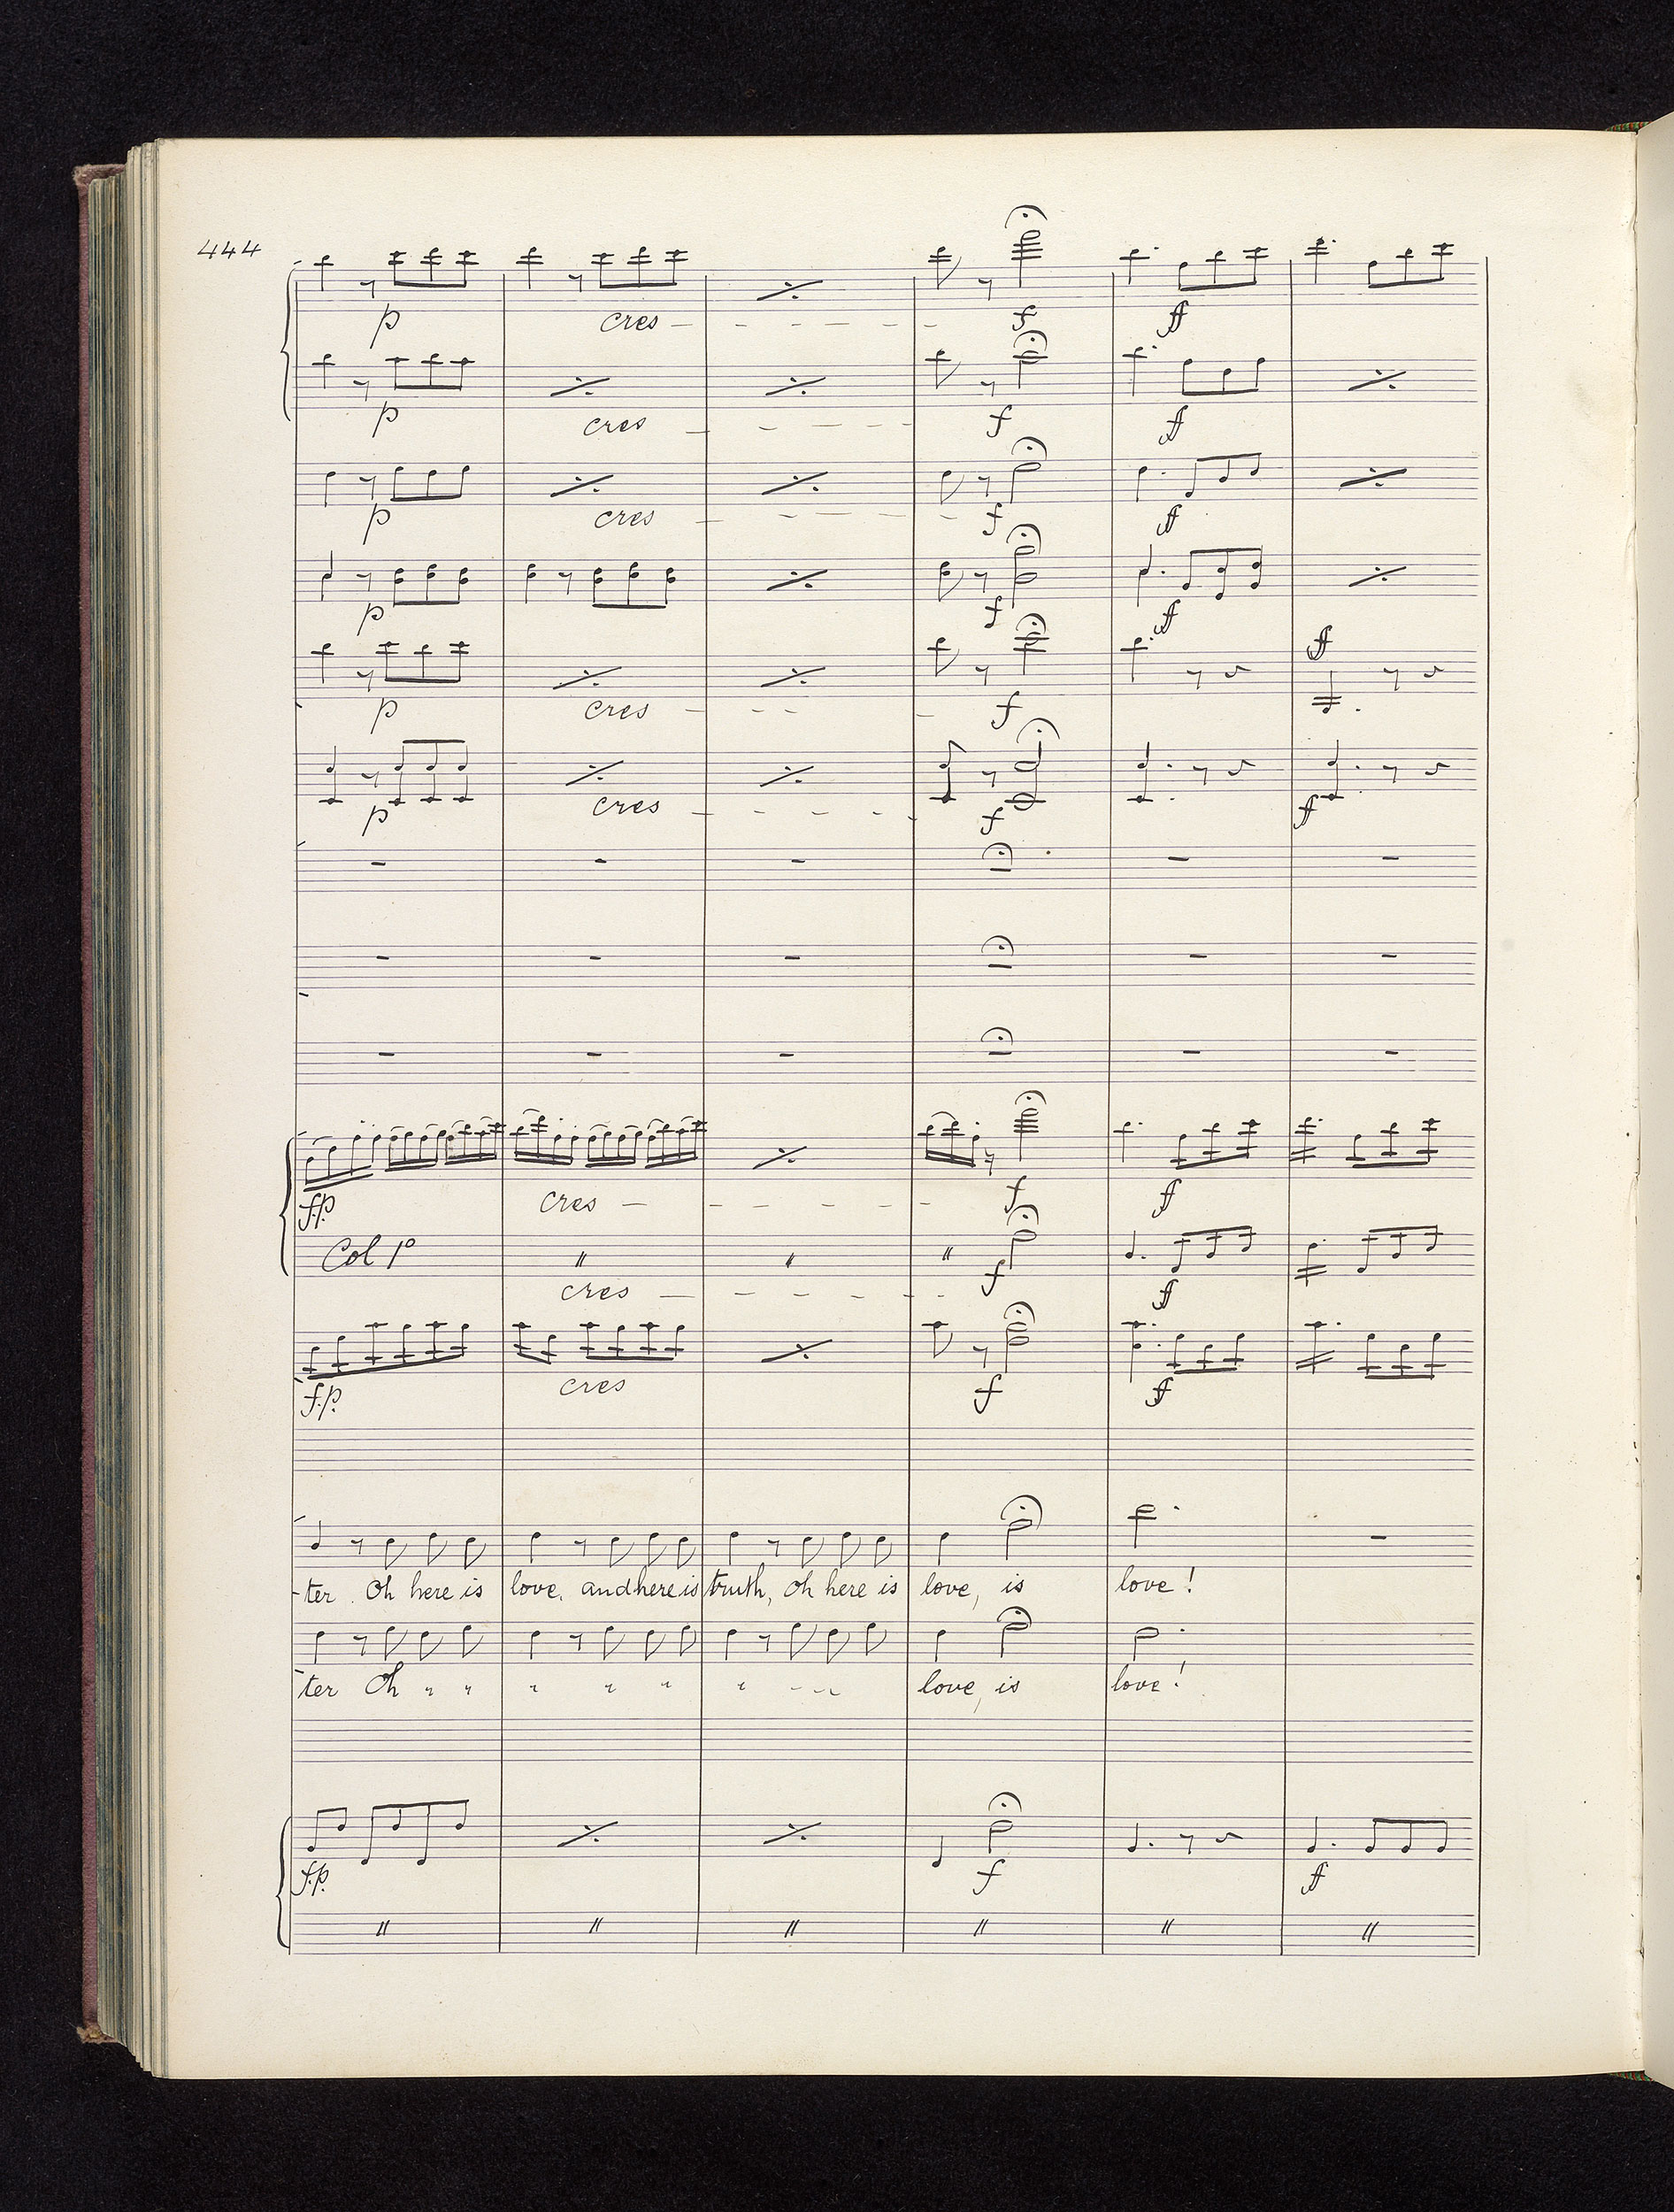 444
p cres f ff
p cres f ff
p cres f ff
p cres f ff
p cres f ff
p cres f ff
fp cres f ff
Col 1º cres f ff
f.p. cres f ff
-ter. Oh here is love, and here is truth, oh here is love, is love!
ter Oh " " " " " " love, is love!
f.p. f ff